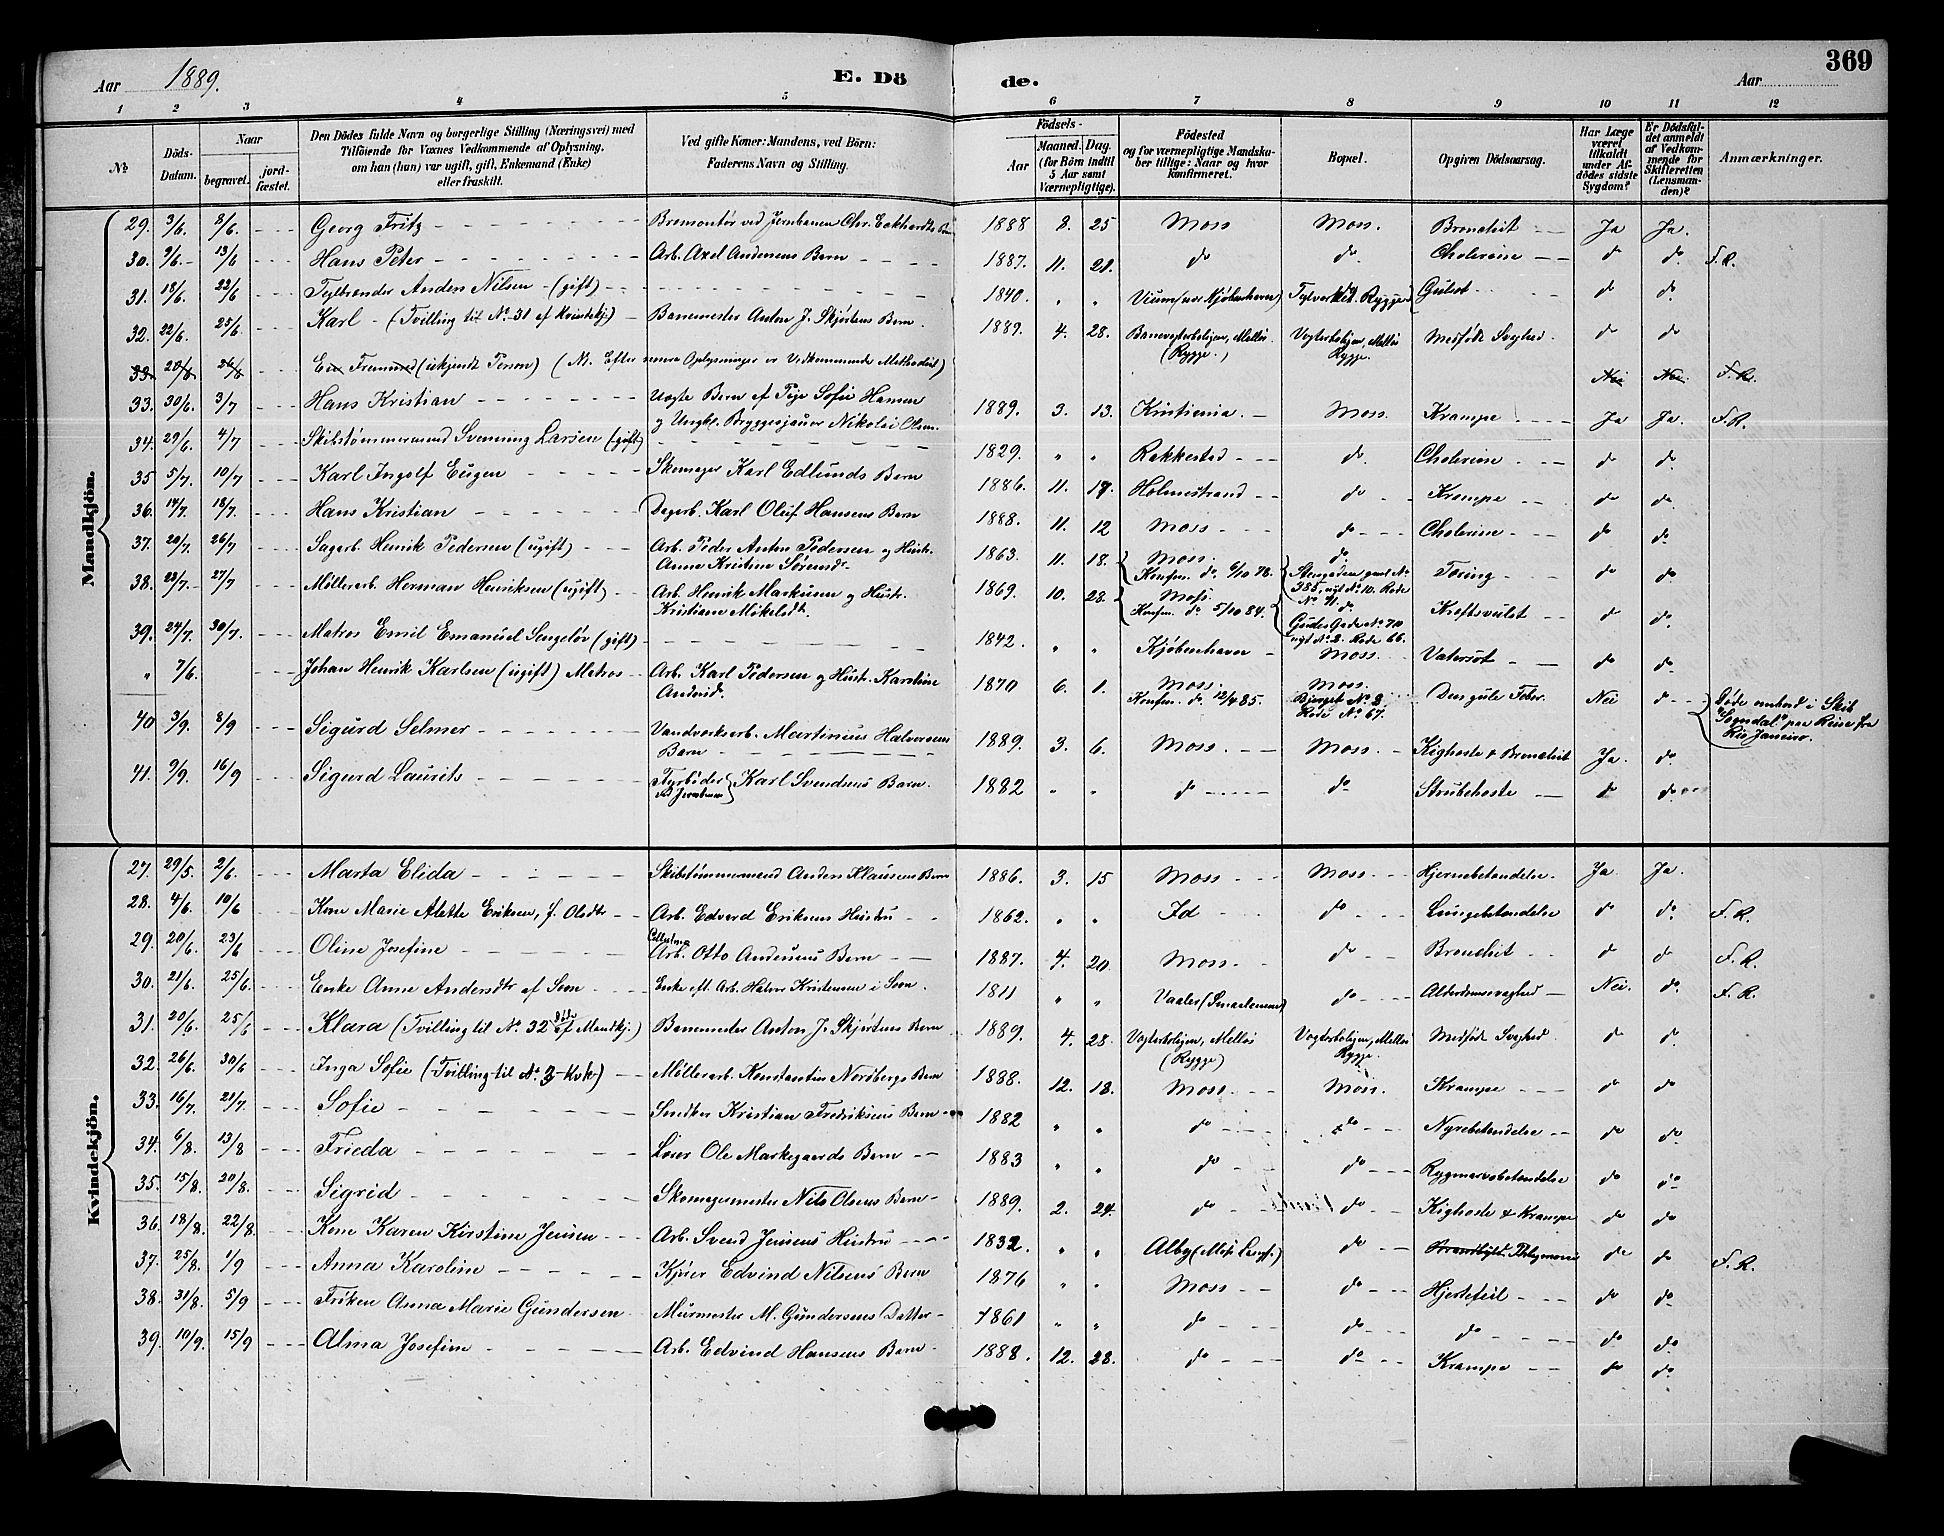 369
Aar 1889. E. Dö de. Aar
1 2 3 4 5 6 7 8 9 10 11 12
No. Döds-Datum. Naar begravet. jordfæstet. Den Dödes fulde Navn og borgerlige Stilling (Næringsvei) med Tilföiende for Voxnes Vedkommende af Oplysning, om han (hun) var ugift, gift, Enkemand (Enke) eller fraskilt. Ved gifte Koner: Mandens, ved Börn: Faderens Navn og Stilling. Födsels- Aar Maaned. Dag. (for Börn indtil 5 Aar samt Værnepligtige). Födested og for værnepligtige Mandskaber tillige: Naar og hvor konfirmeret. Bopæl. Opgiven Dödsaarsag. Har Læge været tilkaldt under Afdödes sidste Sygdom? Er Dödsfaldet anmeldt af Vedkommende for Skifteretten (Lensmanden)? Anmærkninger.
Mandkjön.
29. 3/6. 8/6. Georg Fritz Bremontör ved Jernbanen Chr. Eckhardts Bn 1888 8. 25 Moss Moss. Bronchit Ja Ja.
30. 9/6. 13/6 Hans Peter Arb. Axel Andersens Barn 1887. 11. 21. do do. Cholerine do do. F.R.
31. 18/6. 22/6 Teglbrænder Anders Nilsen (gift) 1840. " " Teglverket. Rygge Gulsot do do.
32. 22/6. 25/6. Karl (Tvilling til No. 31 af Kvindekj.) Banemester Anton J. Skjörtens Barn. 1889. 4. 28. Banevogterboligen, Mellös (Rygge.) Vogterboligen, Mellös Rygge. Medfödt Svaghed do do
33 20/8 26/8 En Fremmed (ukjendt Person) (NB. Efter senere Oplysninger er Vedkommende Methodist) Nei Nei. F.R.
33. 30/6. 3/7 Hans Kristian Uægte Barn af Pige Sofie Hansen og Ungk. Bryggesjauer Nikolai Olsen. 1889. 3. 13. Kristiania. Moss. Krampe Ja Ja. F.R.
34. 29/6. 4/7 Skibstömmermand Svenning Larsen (gift) 1829. " " Rakkestad do. Cholerine do do.
35 5/7. 10/7 Karl Ingolf Eugen Skomager Karl Edlunds Barn 1886. 11. 17. Holmestrand do Krampe do do.
36. 14/7. 18/7. Hans Kristian Dagarb. Karl Oluf Hansens Barn 1888. 11. 12 Moss do Cholerine do do.
37. 20/7. 26/7 Sagarb. Henrik Pedersen (ugift) Arb. Peder Anton Pedersen og Hustr. Anne Kristine Sörensdr 1863. 11. 18. Moss. Konfirm. do. 6/10 78. do. Stengaden gml No 385, nyt No. 10. Rode No. 71. Tæring do do
38. 23/7. 27/7 Möllerarb. Herman Henriksen (ugift) Arb. Henrik Markusen og Hustr. Kristiane Mikelsdr. 1869. 10. 28. Moss. Konfirm. do. 5/10 84. do Gudes Gade No 70 nyt No. 2. Rode 66. Kræftsvulst do do.
39. 24/7. 30/7. Matros Emil Emanuel Sengelöv (gift) 1842. " " Kjöbenhavn Moss. Vatersot do do.
" 7/6. Johan Henrik Karlsen (ugift) Matros Arb. Karl Pedersen og Hustr. Karoline Andersd. 1870 6. 1. Moss. Konfirm. do. 12/4 85. Moss. Bjerget No. 3. Rode No. 67. Den gule Feber. Nei do Döde ombord i Skib "Sogndal" paa Reise fra Rio Janeiro.
40 3/9. 8/9 Sigurd Selmer Vandværksarb. Martinius Halvorsens Barn 1889. 3. 6. Moss. Moss. Kighoste & Bronchit Ja. do.
41. 9/9. 16/9 Sigurd Laurits Fyrböder ved Jernbanen Karl Svendsens Barn. 1882 " " do do Strubehoste do do
Kvindekjön.
27. 29/5. 2/6. Marta Elida Skibstömmermand Anders Klausens Barn 1886. 3. 15 Moss Moss Hjernebetændelse. Ja. Ja.
28. 4/6. 10/6 Kone Marie Alette Eriksen, f. Olsdtr Arb. Edvard Eriksens Hustru 1862. " " Id do Lungebetændelse do do. F.R.
29. 20/6. 23/6 Oline Josefine Cellulose Arb. Otto Andersens Barn 1887. 4. 20. Moss. do Bronchit do do. F.R.
30. 21/6. 25/6. Enke Anne Andersdtr af Soon Enke eft. Arb. Halvor Kristensen i Soon. 1811 " " Vaaler (Smaalenene) do Alderdomssvaghed Nei. do. F.R.
31. 20/6. 25/6 Klara (Tvilling til No 32 Döde af Mandkj.) Banemester Anton J. Skjörtens Barn 1889. 4. 28. Vogterboligen, Mellös (Rygge) Vogterboligen, Mellös Rygge. Medfödt Svaghed do do.
32. 26/6. 30/6 Inga Sofie Möllerarb. Konstantin Nordbergs Barn 1888. 12. 18. Moss Moss. Krampe do do
33. 16/7. 21/7. Sofie Sendebu Kristian Fredriksens Barn 1882 " " do do Nyrebetændelse do do.
34. 6/8. 13/8 Frieda Loser Ole Markegaards Barn 1883 " " do do Rygmarvsbetændelse do do
35. 15/8. 20/8. Sigrid Skomagermester Nils Olsens Barn 1889. 2. 24. do do Kighoste & Krampe do do
36. 18/8. 22/8. Kone Karen Kirstine Jensen Arb. Svend Jensens Hustru 1832. " " Alby (Moss Landsf.) do do do F.R.
37. 25/8. 1/9 Anna Karoline Kjörer Edvind Nilsens Barn 1876 " " Moss do Hjertefeil do do.
38. 31/8. 5/9 Fröken Anna Marie Gundersen Murmester M. Gundersens Datter 1861 " " do do do do do.
39. 10/9. 15/9 Alma Josefine Arb. Edvind Hansens Barn 1888. 12. 28. do do Krampe do do